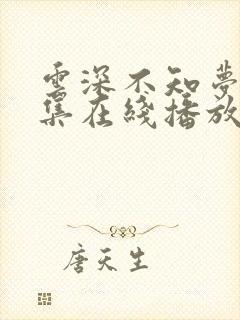 雲深不知夢
集在綫播放
唐天生